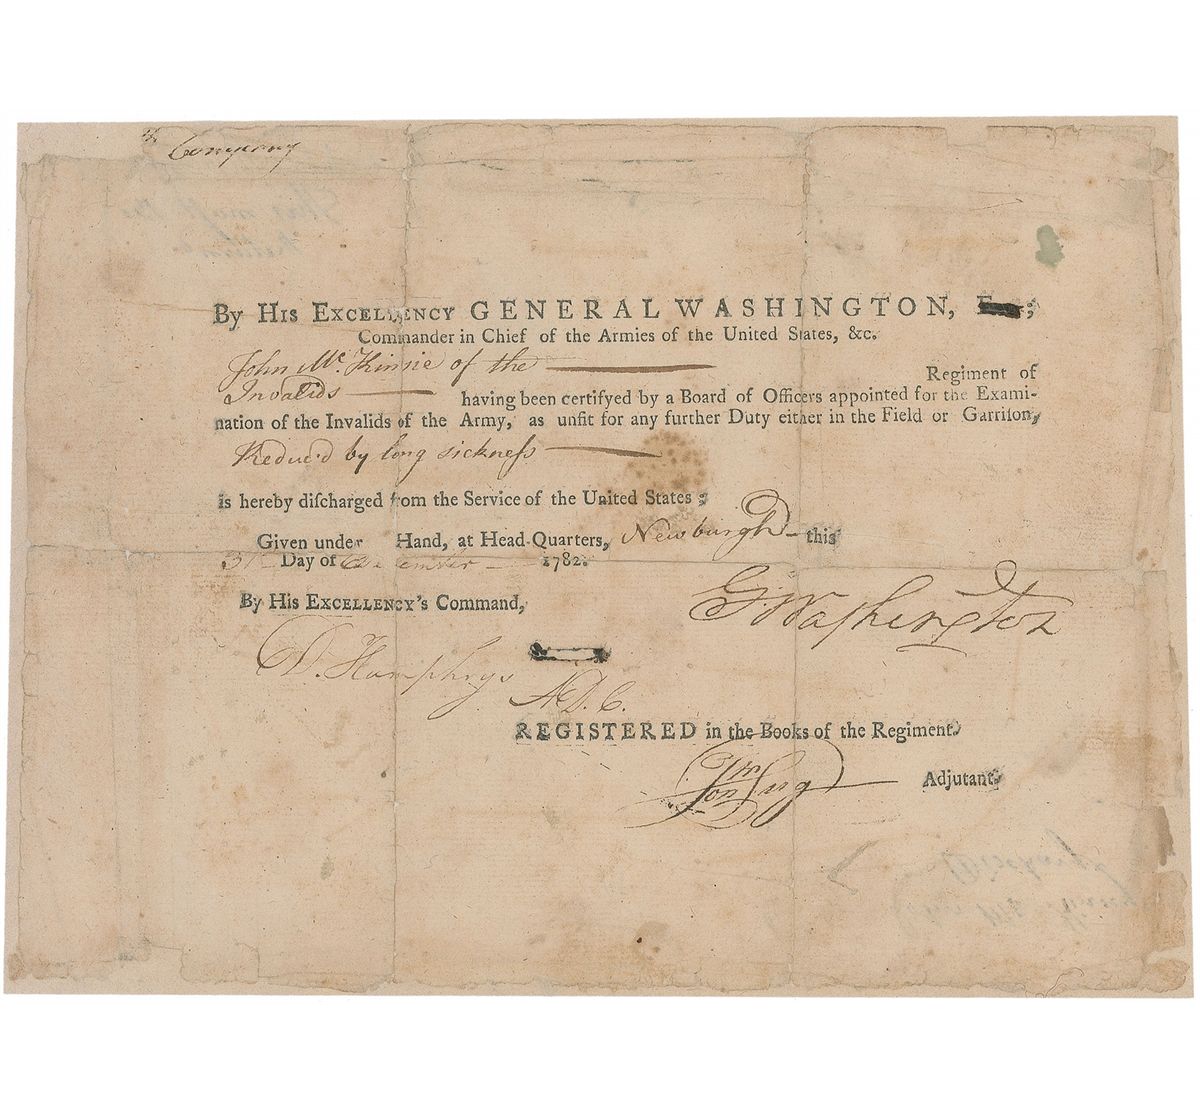 th
Company
By His Excellency GENERAL WASHINGTON, Esq;
Commander in Chief of the Armies of the United States, &c.
John Mc. Kinnie of the
Regiment of
Invalids having been certifyed by a Board of Officers appointed for the Exami-
nation of the Invalids of the Army, as unfit for any further Duty either in the Field or Garriſon,
Reduc'd by long sickneſs
is hereby diſcharged from the Service of the United States;
Given under Hand, at Head-Quarters, Newburgh this
31st Day of December 1782.
By His Excellency's Command,
G:Washington
D. Humphrys
A.D.C.
REGISTERED in the Books of the Regiment.
Adjutant.